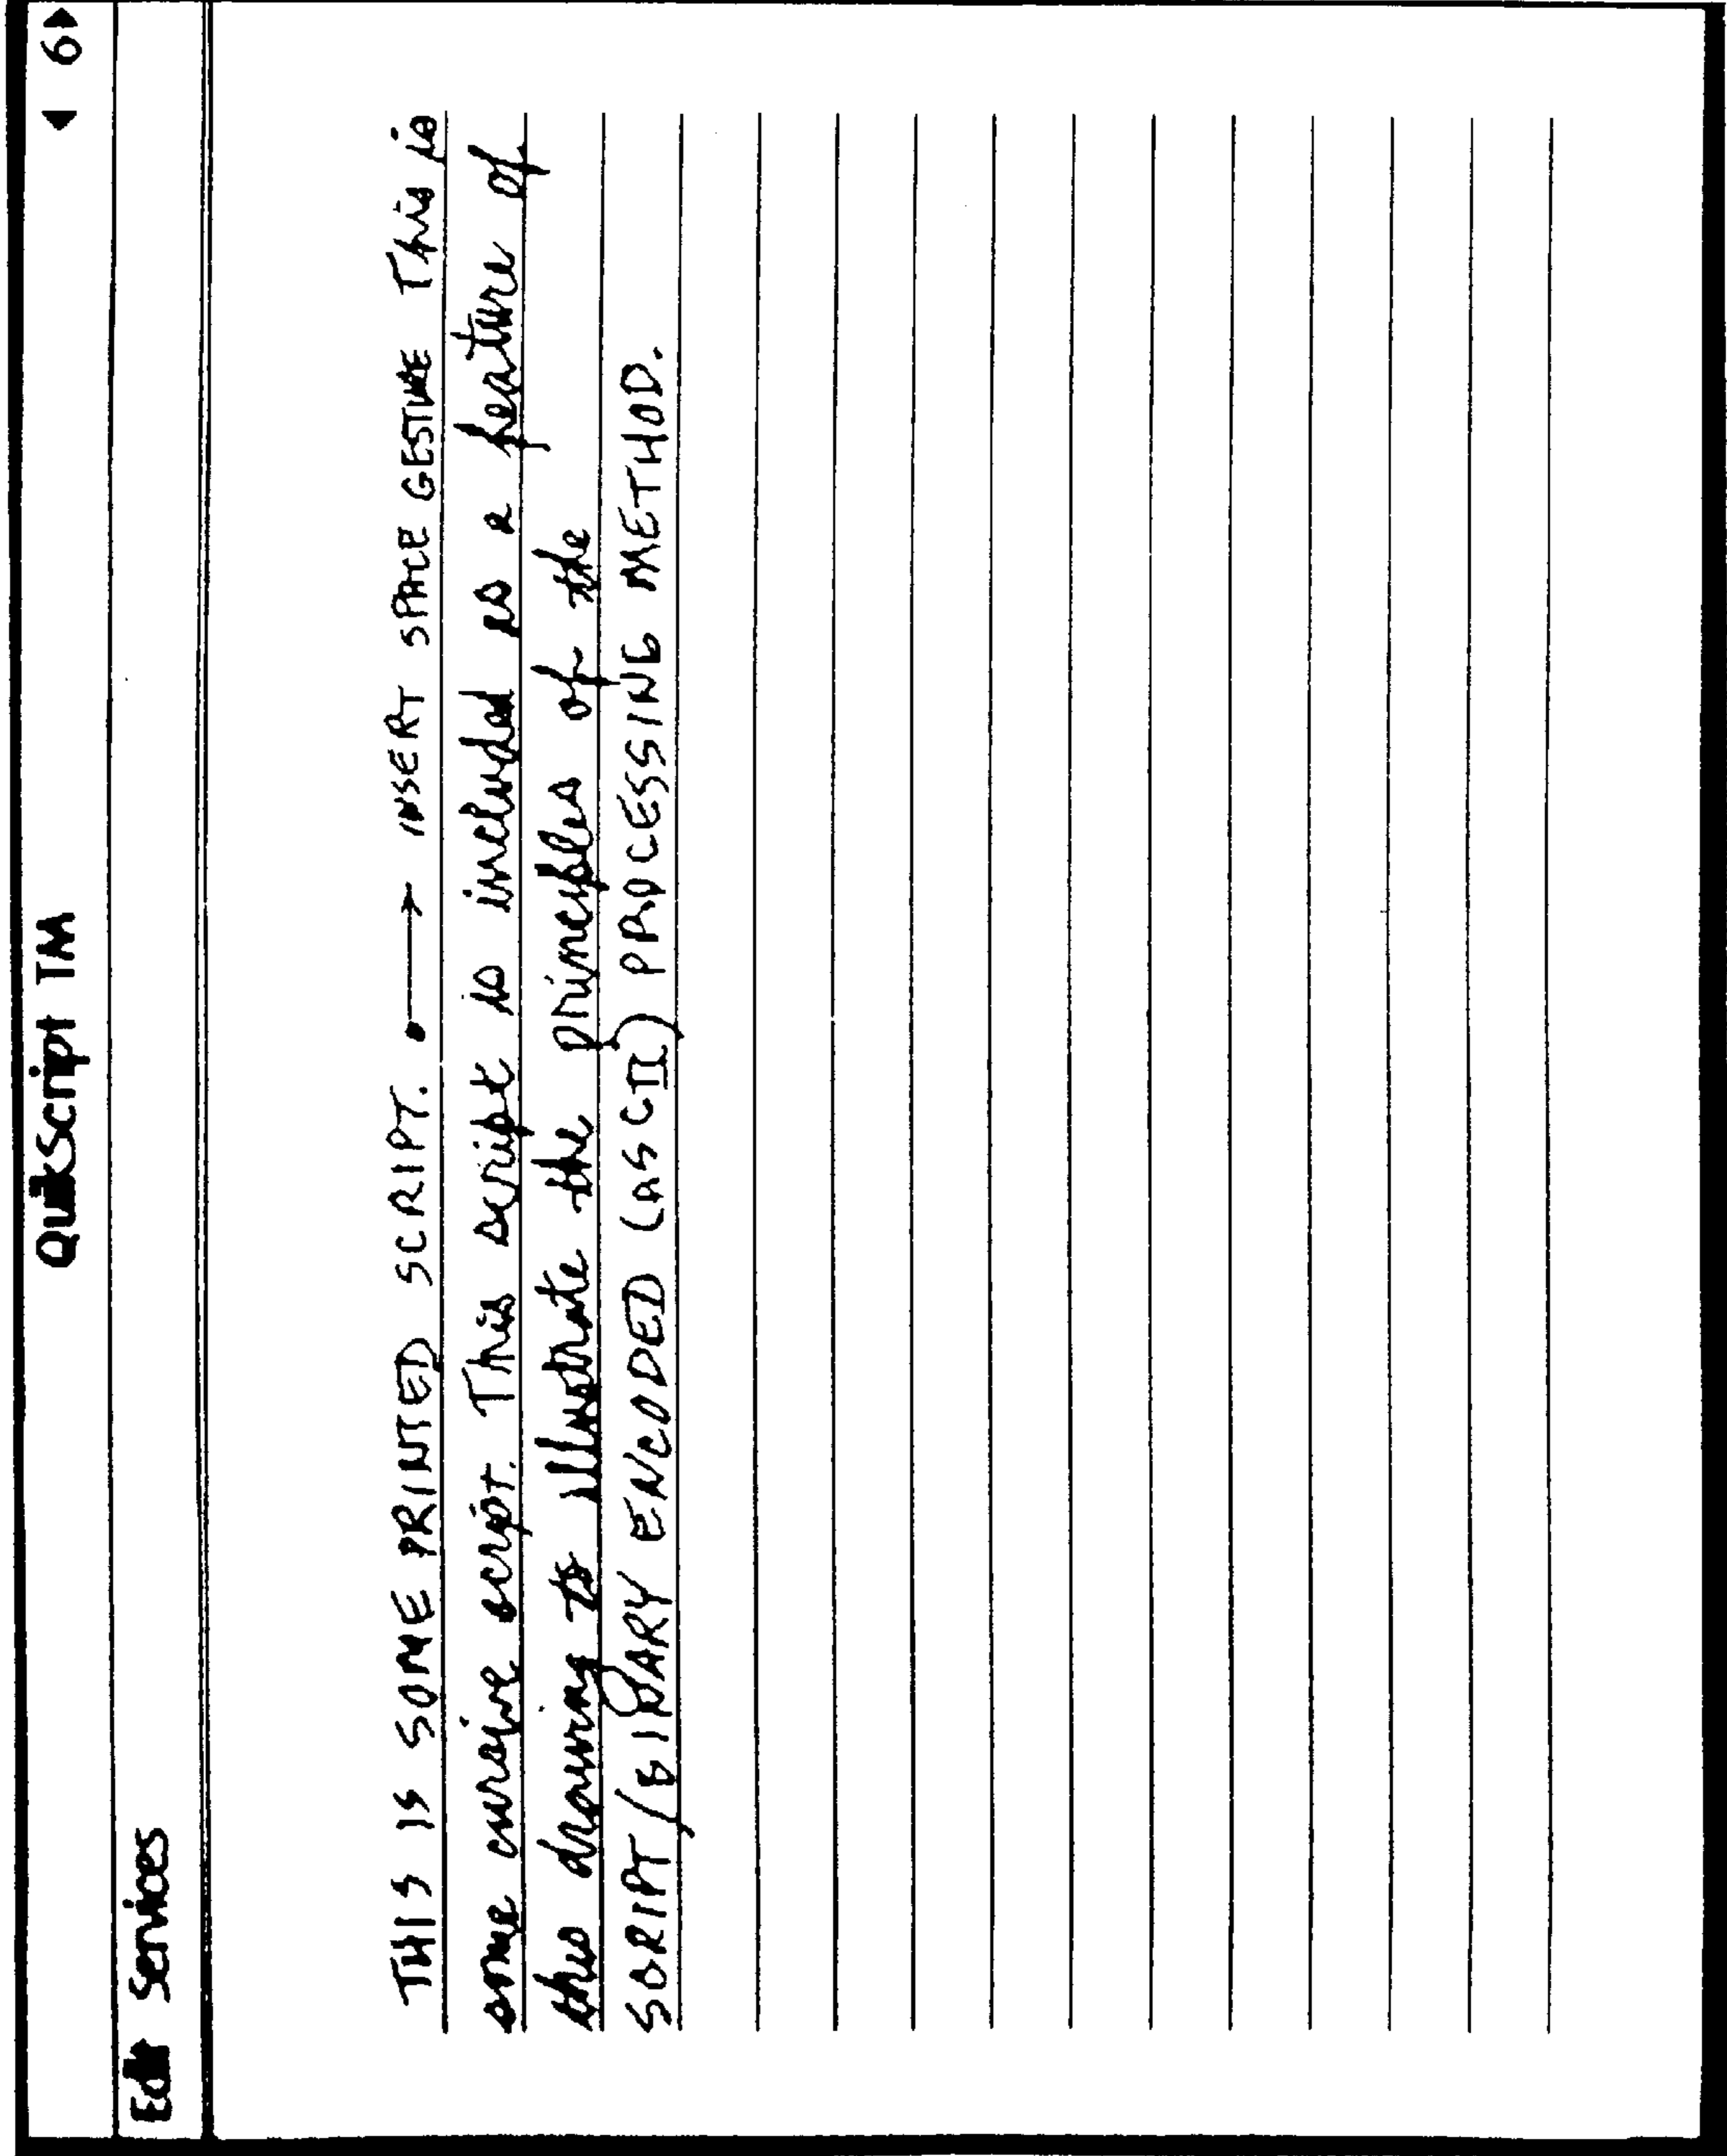 QuikScript TM ◀ 6▶
Edit Services
THIS IS SOME PRINTED SCRIPT. •⟶ INSERT SPACE GESTURE This is
some cursive script. This script is included as a feature of
this drawing to illustrate the principles of the
SCRIPT/BINARY ENCODED (ASCII) PROCESSING METHOD.